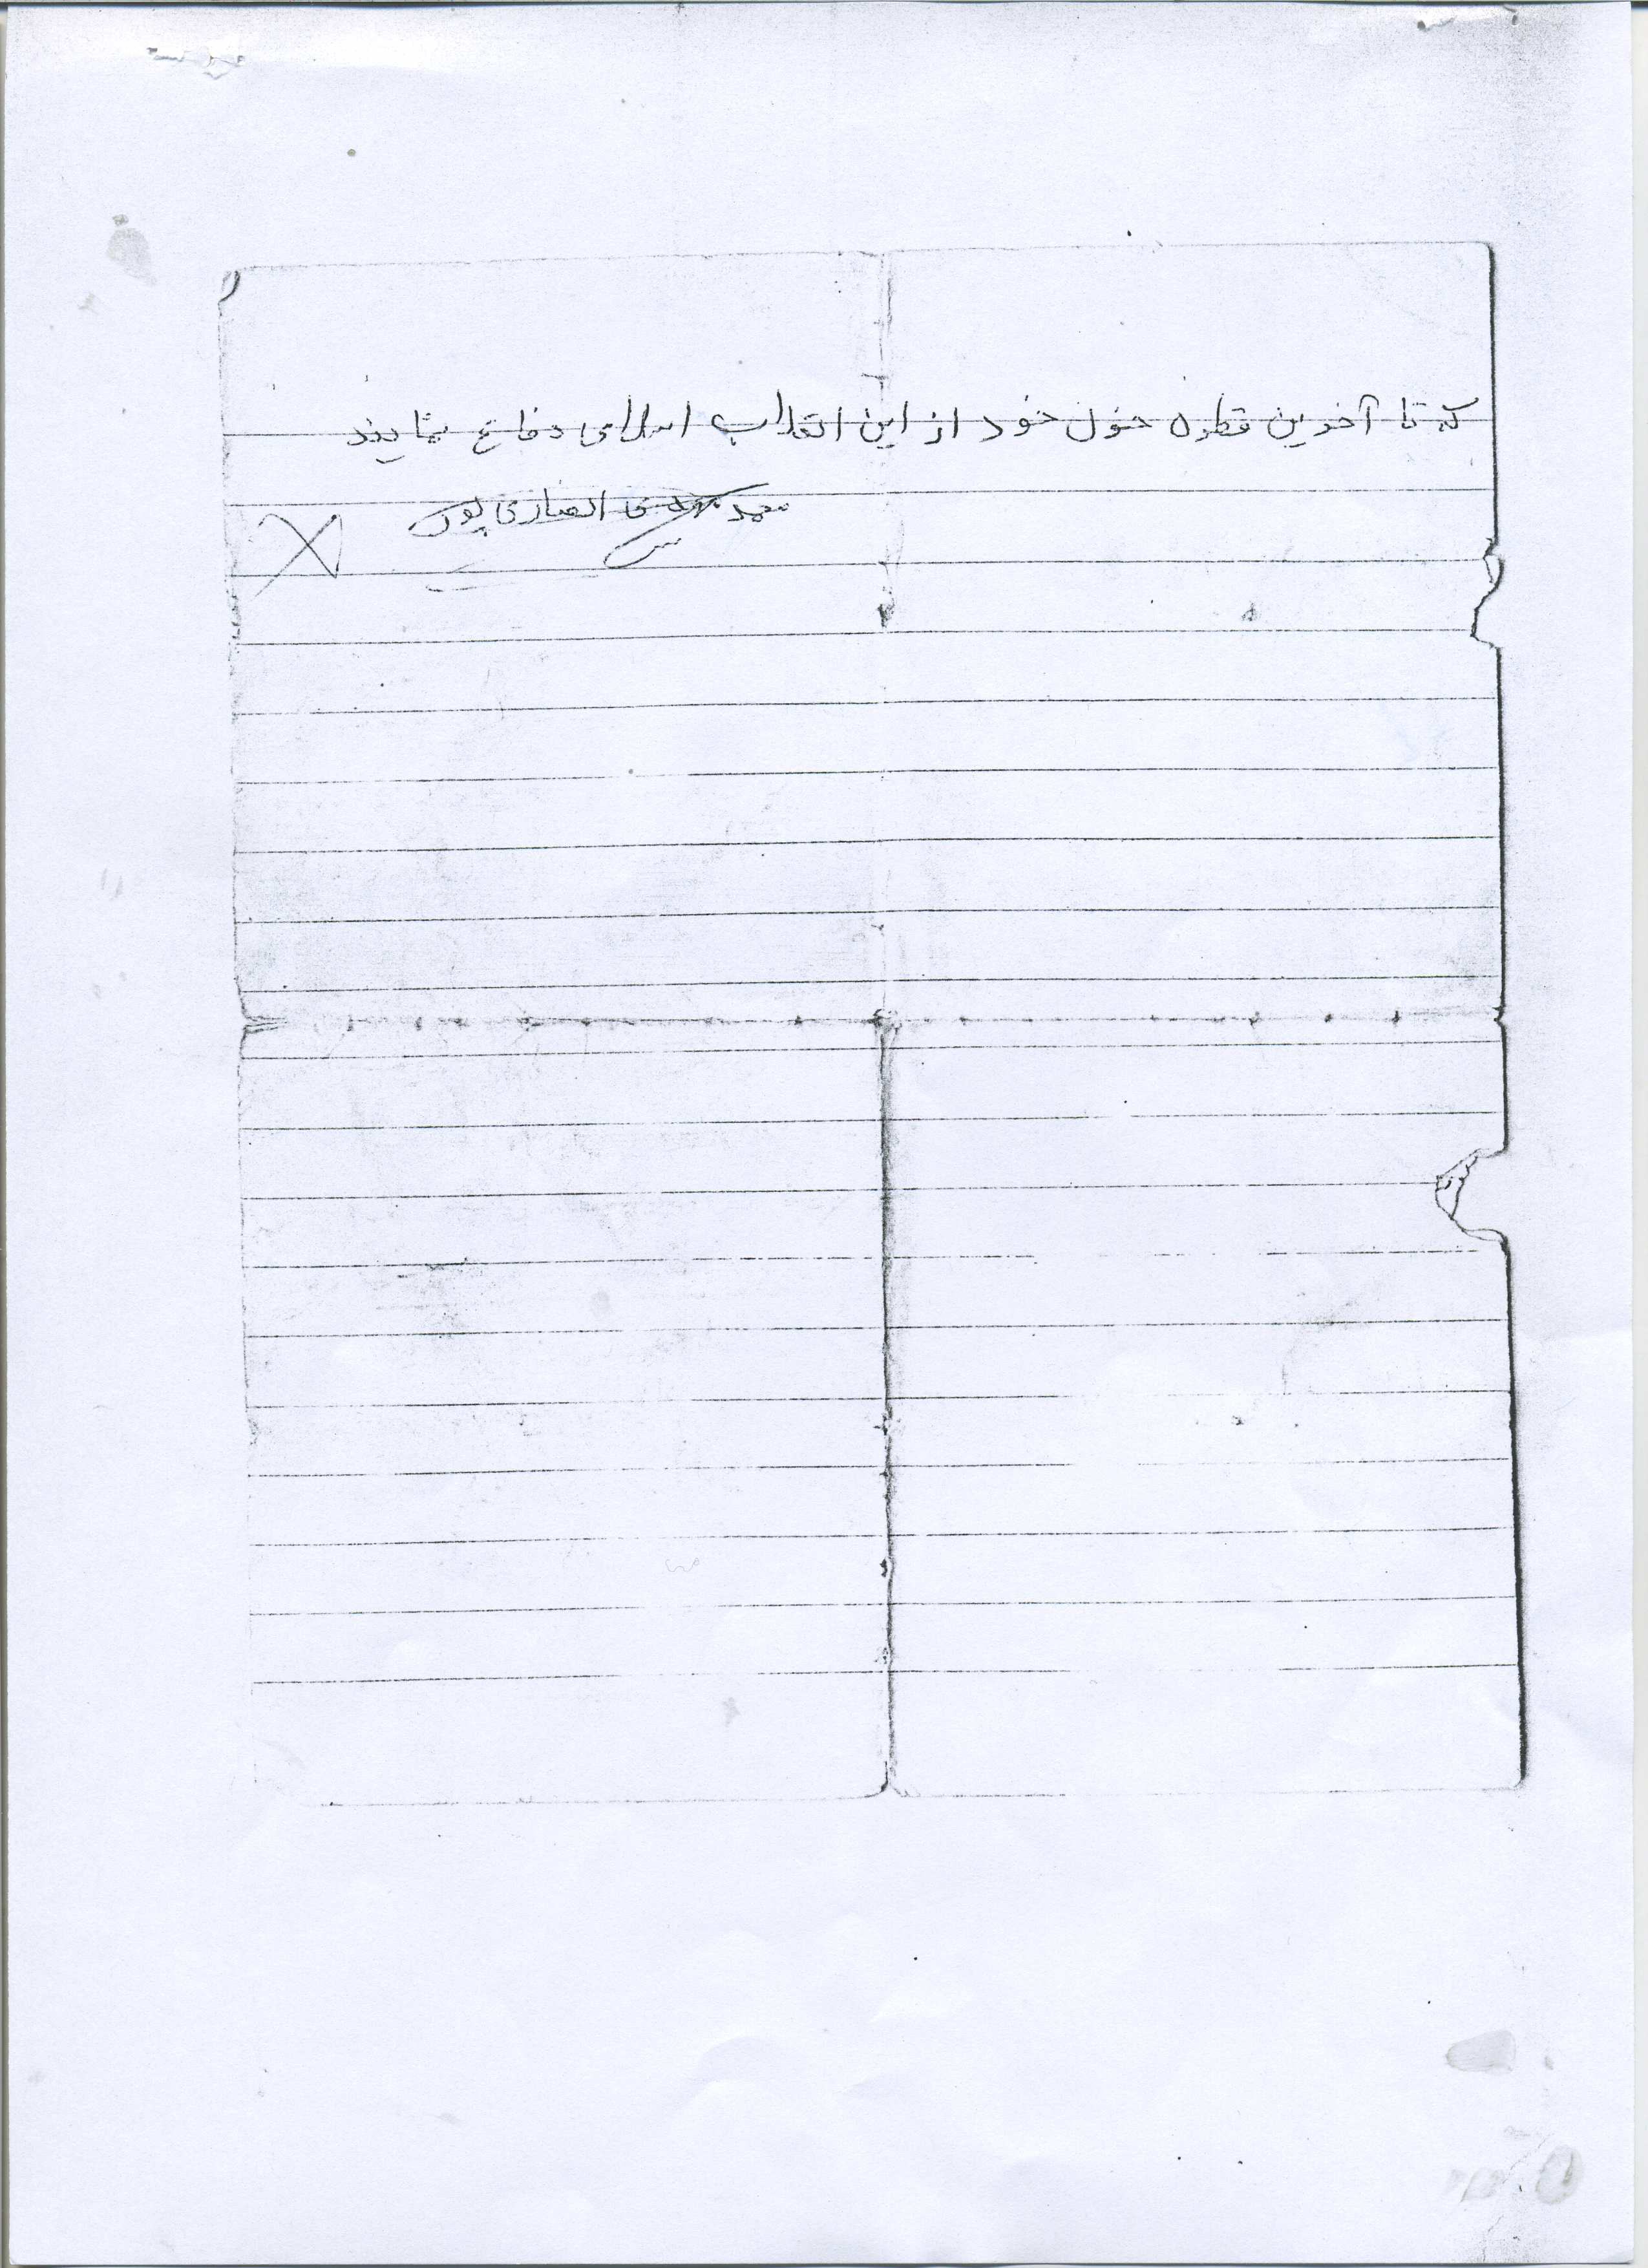 که تا آخرین قطره خون خود از این انقلاب اسلامی دفاع نمایند
محمد مهدی انصاری پور